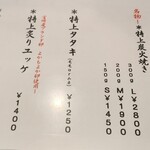 馬物!
*特上炭火焼き
300g L ¥2800
200g M ¥1900
150g S ¥1450
*特上タタキ
¥1250
*特上炙りユッケ
¥1400